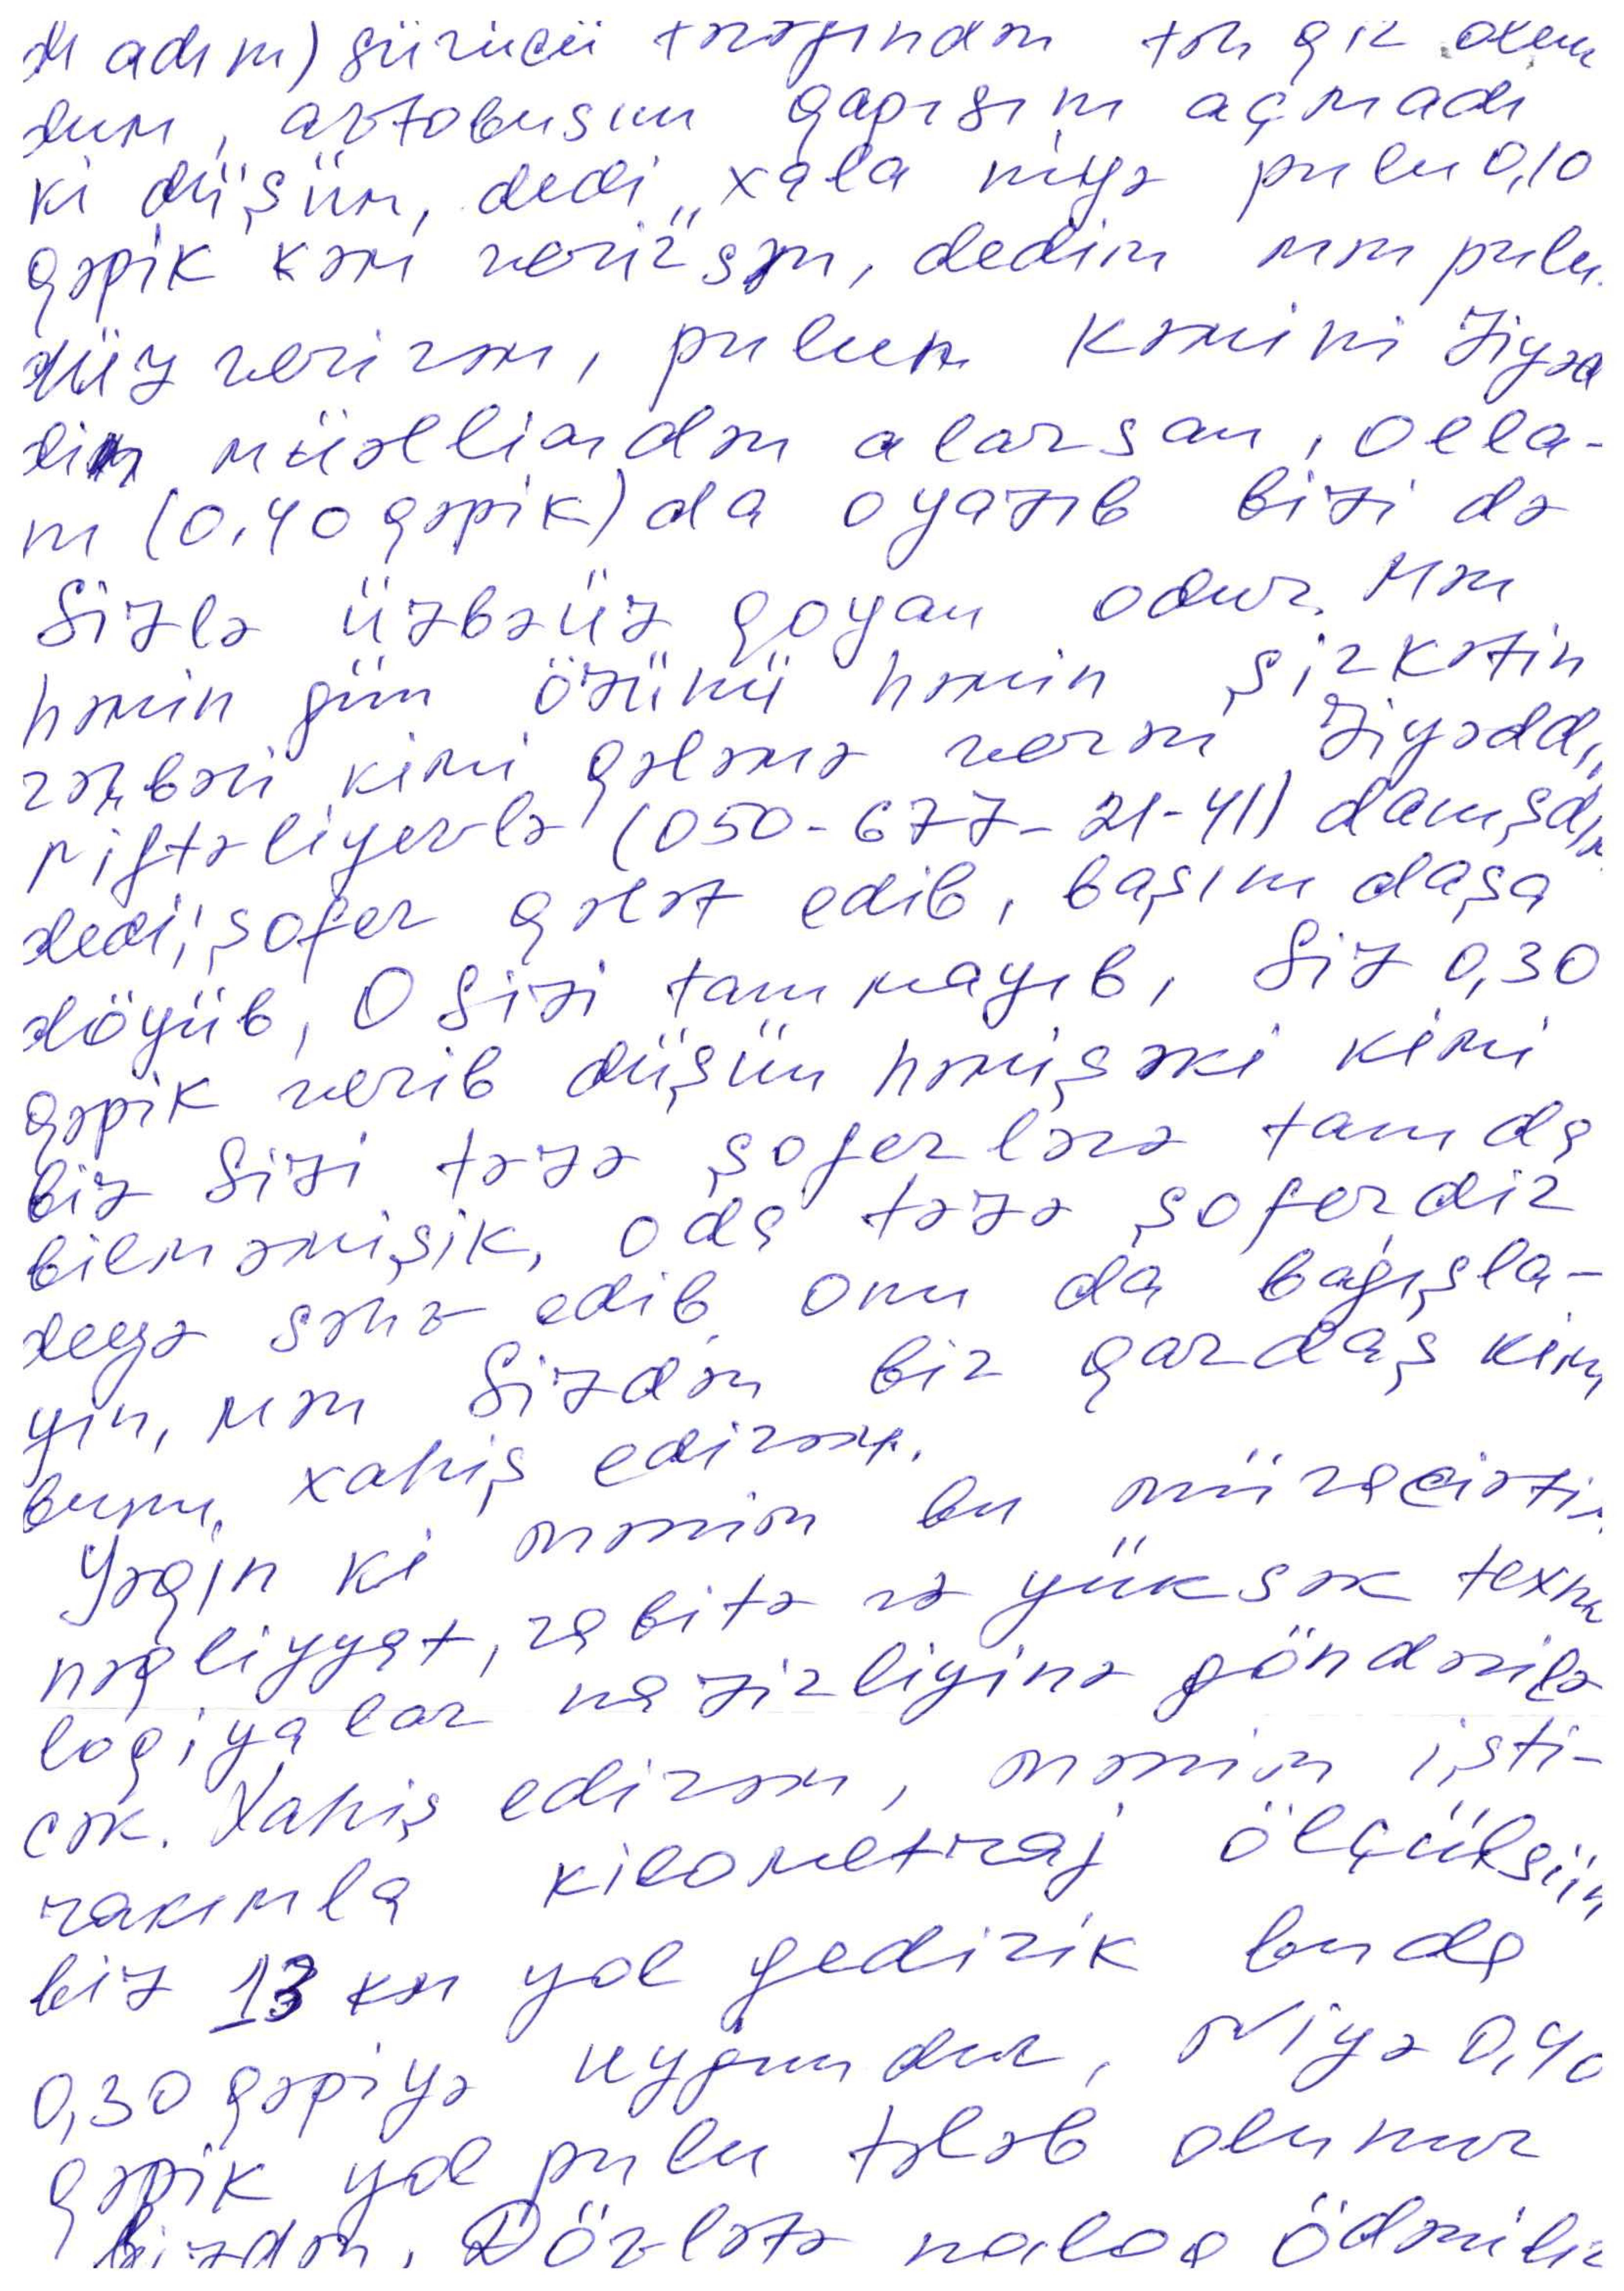 dı adım) sürücü tərəfindən təhqir olun
dum, avtobusun qapısını açmadı
ki düşüm, dedi „xala niyə pulu 0,10
qəpik kəm verirsən, dedim mən pulu
düz verirəm, pulun kəmini Ziyəd
din müəllimdən alarsan, olla-
m (0,40 qəpik) da o yazıb bizi də
Sizlə üzbəüz qoyan odur. Mən
həmin gün özünü həmin şirkətin
rəhbəri kimi qələmə verən Ziyəddi
Miftəliyevlə (050-677-21-41) danışdım
dedi; şofer qələt edib, başını daşa
döyüb, O Sizi tanımayıb, Siz 0,30
qəpik verib düşün həmişəki kimi
biz Sizi təzə şoferlərə tanıda
bilməmişik, oda təzə şoferdir
deyə səhv edib onu da bağışla-
yın, mən Sizdən bir qardaş kimi
bunu xahiş edirəm.
Yəqin ki mənim bu müraciəti
nəqliyyat, rabitə və yüksək texno
logiyalar nazirliyinə göndərilə
cək. Xahiş edirəm, mənim işti-
rakımla kilometraj ölçülsün
biz 13 km yol gedirik buda
0,30 qəpiyə uyğundur, Niyə 0,40
qəpik yol pulu tələb olunur
bizdən. Dövlətə naloq ödənilir